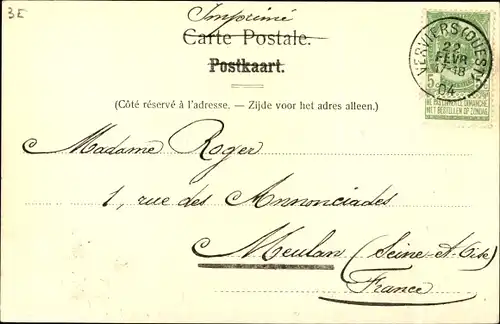 3E
Imprimé
Carte Postale.
Postkaart.
(Côté réservé à l'adresse. — Zijde voor het adres alleen.)
VERVIERS (OUEST)
22
FEVR
17-18
04
5
NE PAS LIVRER LE DIMANCHE
NIET BESTELLEN OP ZONDAG
Madame Roger
1, rue des Annonciades
Meulan (Seine-et-Oise)
France